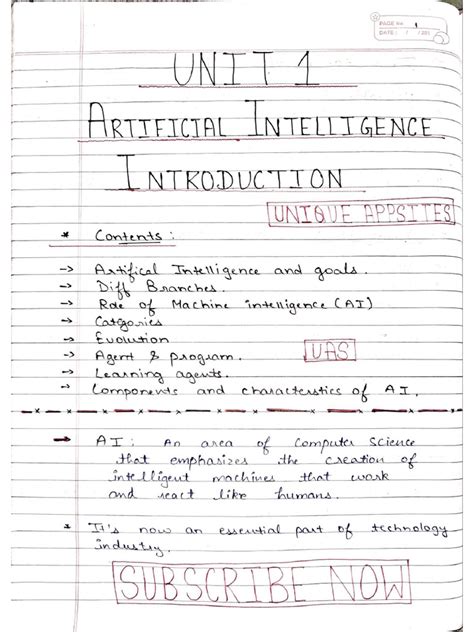 PAGE No. 1
DATE: / /20
UNIT 1
ARTIFICIAL INTELLIGENCE
INTRODUCTION
UNIQUE APPSITES
* Contents :
→ Artifical Intelligence and goals.
→ Diff Branches.
→ Role of Machine intelligence (AI)
→ Categories
→ Evolution
→ Agent & program.
UAS
→ Learning agents.
→ Components and characterstics of AI.
→ AI : An area of Computer Science
that emphasizes the creation of
intelligent machines that work
and react like humans.
* It's now an essential part of technology
industry.
SUBSCRIBE NOW